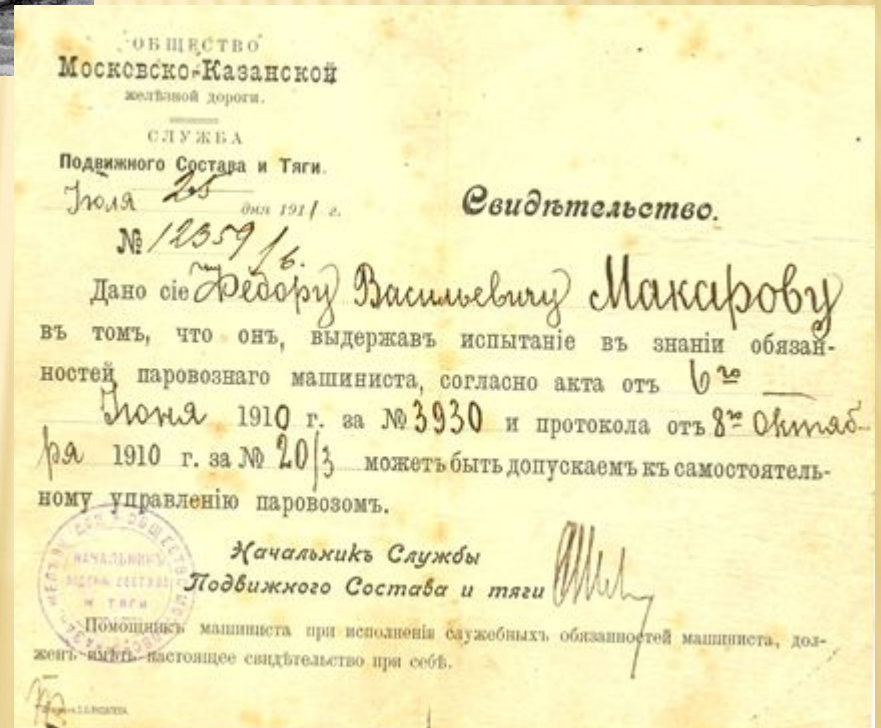 ОБЩЕСТВО
Московско-Казанской
желѣзной дороги.
СЛУЖБА
Подвижного Состава и Тяги.
Іюля 25 дня 1911 г.
№ 12359/6.
Свидѣтельство.
Дано сіе Федору Васильевичу Макарову
въ томъ, что онъ, выдержавъ испытаніе въ знаніи обязан-
ностей паровознаго машиниста, согласно акта отъ 6го
Іюня 1910 г. за № 3930 и протокола отъ 8го Октяб-
ря 1910 г. за № 20/3 можетъ быть допускаемъ къ самостоятель-
ному управленію паровозомъ.
НАЧАЛЬНИКЪ
СОСТАВА
И ТЯГИ
Начальникъ Службы
Подвижного Состава и тяги
Помощникъ машиниста при исполненіи служебныхъ обязанностей машиниста, дол-
женъ имѣть настоящее свидѣтельство при себѣ.